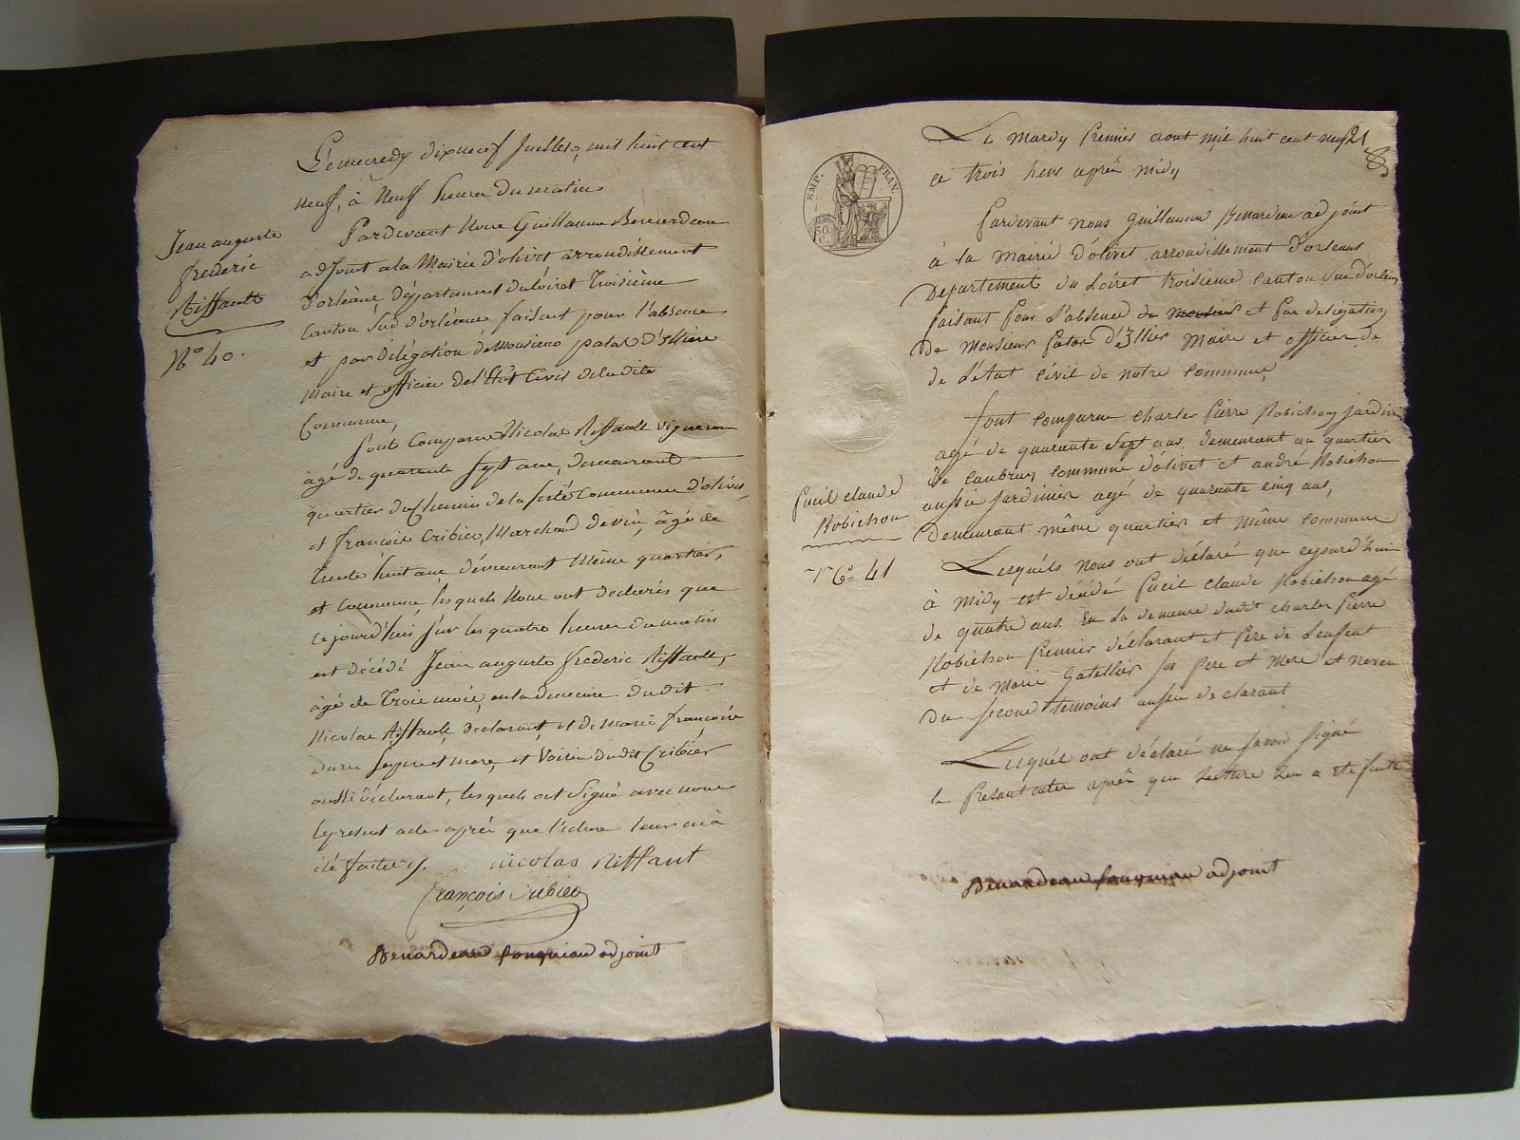 Lemecredy dixneuf Juillet, mil huit cent
neuf, à Neuf heures du matin
Pardevant Nous Guillaume Benardeau
adjoint a la Mairie d'olivet arrondissement
d'orléans, département du loiret Troisième
Canton Sud d'orléans faisant pour l'absence
et par délégation de Monsieur patas d'illiers
Maire et officier de l'Etat Civil de la dite
Commune,
Sont Comparu Nicolas Riffault vigneron
âgé de quarante Sept ans, demeurant
quartier du Chemin de la ferté Commune d'olivet,
et françois Cribier, Marchand de vin, âgé de
trente huit ans demeurant Même quartier,
et Commune, lesquels Nous ont déclarés que
cejourd'hui Sur les quatre heures du matin
est décédé Jean auguste frederic Riffault,
âgé de Trois mois, en la demeure du dit
Nicolas Riffault, déclarant, et de Marie françoise
Ses père et mere, et Voisin dudit Cribier
aussi déclarant, lesquels ont Signé avec nous
le present acte après que lecture leur en à
été faite.
Nicolas Riffaut
François Cribier
Benardeau adjoint
Jean auguste
frederic
Riffault
No 40.
Le Mardy Premier aout mil huit cent neuf
a trois heure aprés midy
21
EMP. FRAN.
50
Pardevant nous Guillaume Benardeau adjoint
à la Mairie d'olivet arrondissement d'orleans
Departement du Loiret troisieme Canton Sud d'orleans
faisant Pour l'absence de monsieur et Par deslegation
de Monsieur Patas d'Illier Maire et officier de
de L'état civil de notre Commune,
Sont Comparu Charles Pierre Robichon jardinier
agé de quarante Sept ans demeurant au quartier
de Commune d'olivet et andré Robichon
aussi Jardinier agé de quarante cinq ans,
Demeurant même quartier et Même Commune
Lesquéls nous ont déclaré que cejourd'hui
à Midy est décédé Claude Robichon agé
de quatre ans En La demeure dudit Charles Pierre
Robichon Premier déclarant et Pere de L'enfent
et de Marie Gatellier Ses Pere et Mere et neveu
du Second temoins aussi declarant
Lesquél ont déclaré ne Savoir Signé
le Présent acte aprés que Lecture Leur a été faite
Benardeau adjoint
Claude
Robichon
No 41